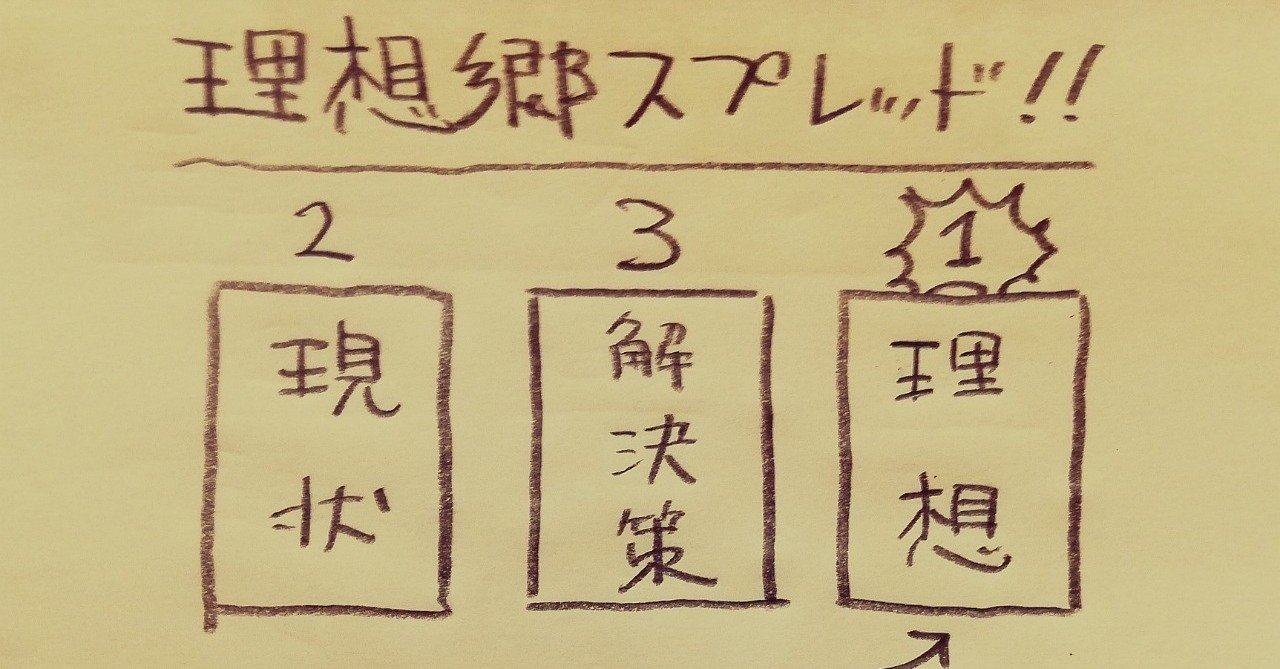 理想郷スプレッド!!
2 3 1
現状 解決策 理想